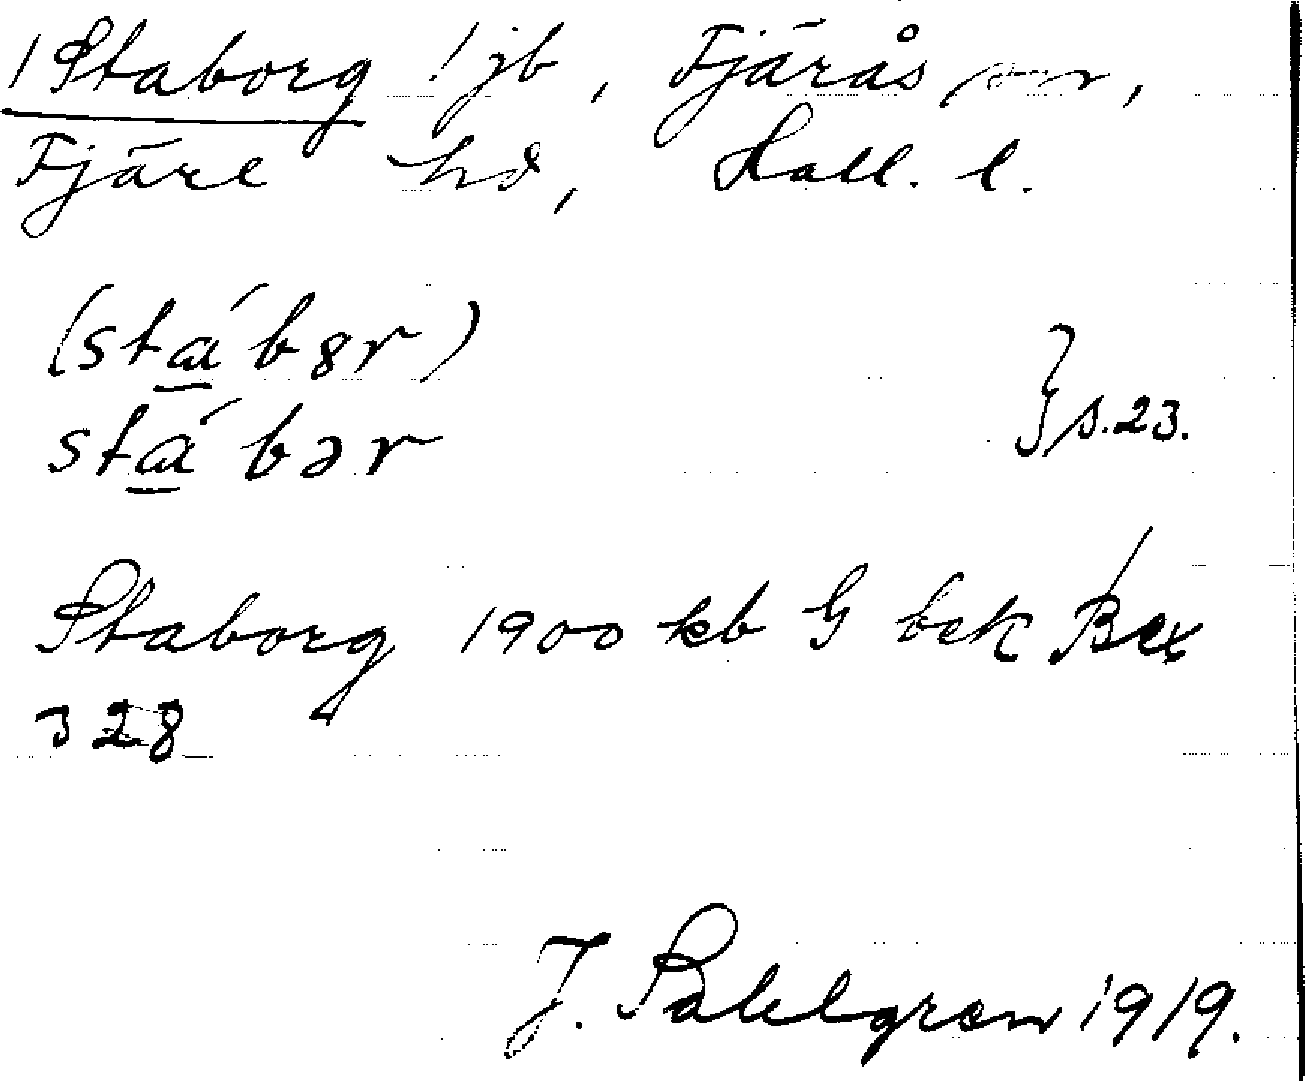 1 Staborg ! jb, Fjärås sn,
Fjäre hd, Hall. l.
(stά̲ bȣr)
stά̲ bər } s. 23.
Staborg 1900 kb G bek Bex
328
J. Sahlgren 1919.